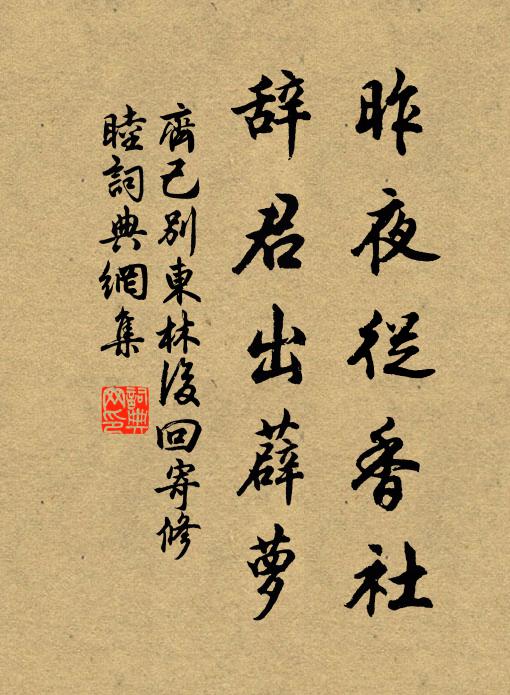 昨夜從香社
辞君出薜萝
齊己别東林後回寄修
睦詞典網集
詞典
网印